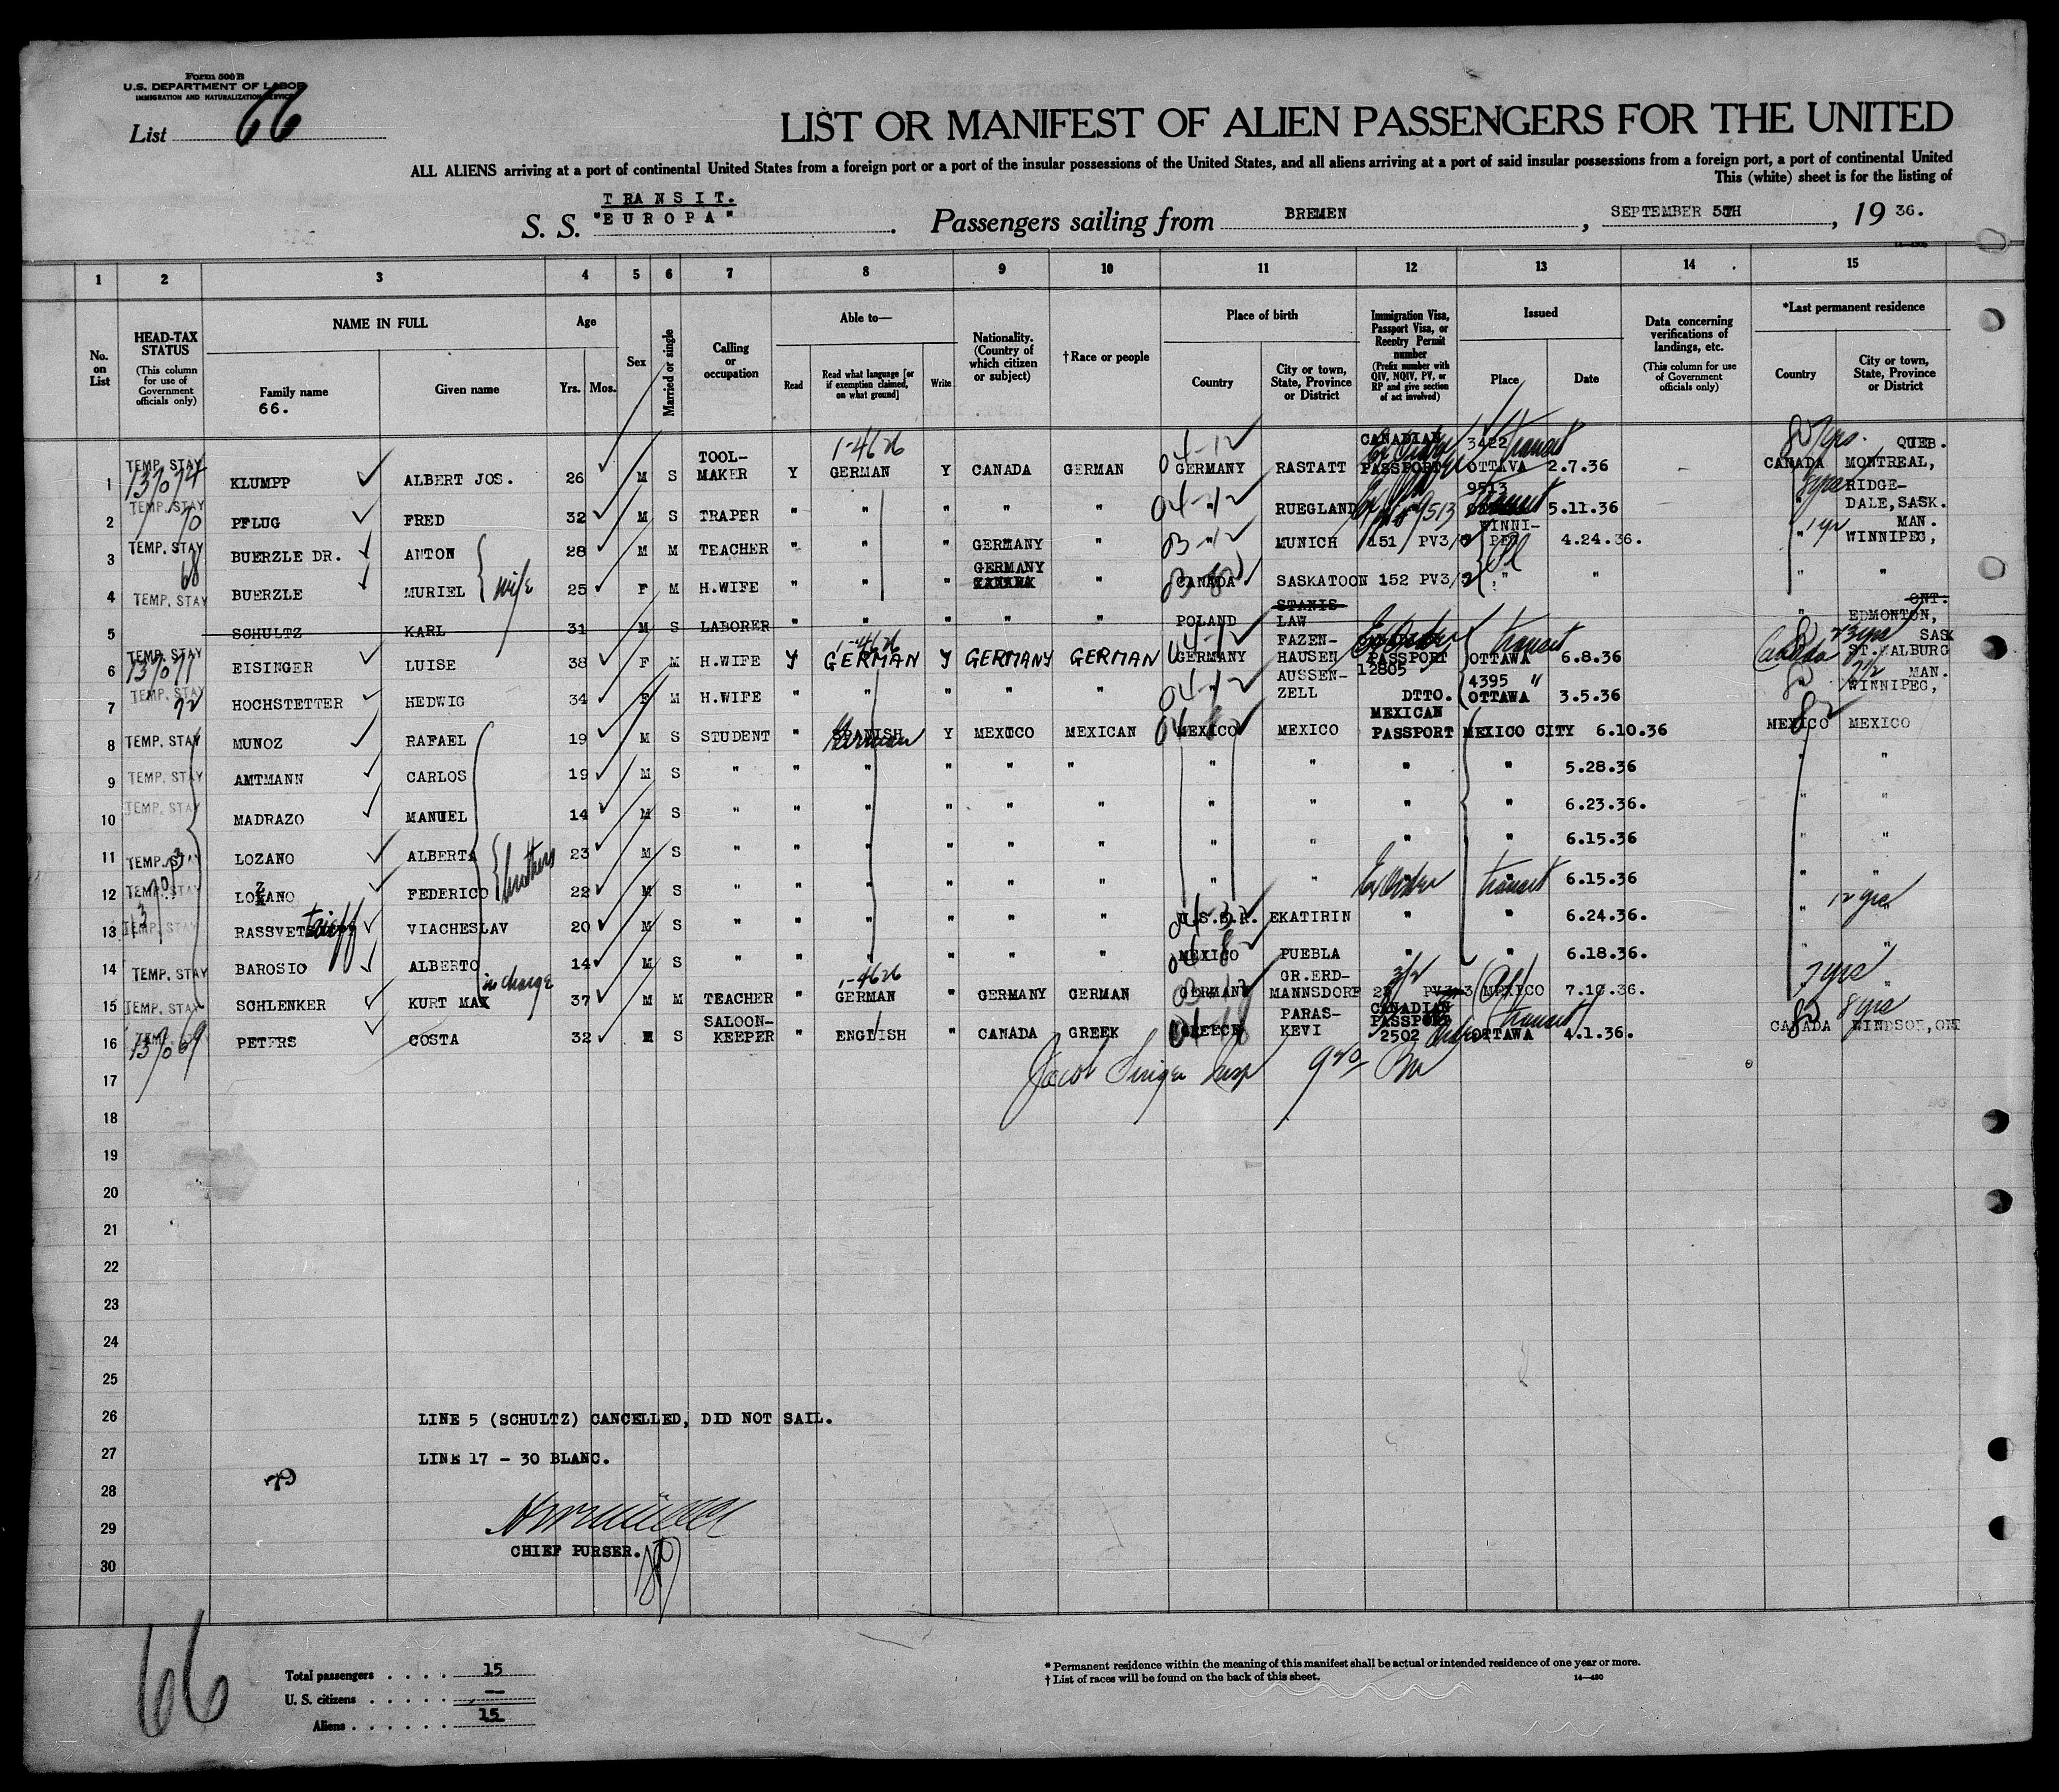 Form 500 B
U.S. DEPARTMENT OF LABOR
IMMIGRATION AND NATURALIZATION SERVICE
List 66
LIST OR MANIFEST OF ALIEN PASSENGERS FOR THE UNITED
ALL ALIENS arriving at a port of continental United States from a foreign port or a port of the insular possessions of the United States, and all aliens arriving at a port of said insular possessions from a foreign port, a port of continental United
This (white) sheet is for the listing of
TRANSIT.
S. S. "EUROPA". Passengers sailing from BREMEN, SEPTEMBER 5TH, 19 36.
1 2 3 4 5 6 7 8 9 10 11 12 13 14 15
No. on List
HEAD-TAX STATUS
(This column for use of Government officials only)
NAME IN FULL
Family name
66.
Given name
Age
Yrs. Mos.
Sex
Married or single
Calling or occupation
Able to—
Read
Read what language [or if exemption claimed, on what ground]
Write
Nationality. (Country of which citizen or subject)
†Race or people
Place of birth
Country
City or town, State, Province or District
Immigration Visa, Passport Visa, or Reentry Permit number
(Prefix number with QIV, NQIV, PV, or RP and give section of act involved)
Issued
Place
Date
Data concerning verifications of landings, etc.
(This column for use of Government officials only)
*Last permanent residence
Country
City or town, State, Province or District
1 TEMP. STAY KLUMPP ALBERT JOS. 26 M S TOOL-MAKER Y 1-4626 GERMAN Y CANADA GERMAN 04-12 GERMANY RASTATT CANADIAN PASSPORT 3422 transit OTTAWA 2.7.36 7yrs. CANADA QUEB. MONTREAL,
2 TEMP. STAY 70 PFLUG FRED 32 M S TRAPER " " " " " 04-12 " RUEGLAND 9513 9513 5.11.36 " RIDGE-DALE,SASK.
3 TEMP. STAY BUERZLE DR. ANTON 28 M M TEACHER " " " GERMANY " 03-12 " MUNICH 151 PV3/2 WINNI-PEG 4.24.36. 1 yr " MAN. WINNIPEG,
4 TEMP. STAY 68 BUERZLE MURIEL wife 25 F M H.WIFE " " " GERMANY CANADA " CANADA SASKATOON 152 PV3/2 " " " "
5 SCHULTZ KARL 31 M S LABORER " " " " " POLAND STANIS-LAW " ONT. EDMONTON,
6 TEMP. STAY 13/071 EISINGER LUISE 38 F M H.WIFE Y 1-4626 GERMAN Y GERMANY GERMAN 04-12 GERMANY FAZEN-HAUSEN PASSPORT 12805 transit OTTAWA 6.8.36 Canada SASK ST.WALBURG
7 TEMP. STAY 72 HOCHSTETTER HEDWIG 34 F M H.WIFE " " " " " 04-12 " AUSSEN-ZELL DTTO. 4395 " OTTAWA 3.5.36 MAN. WINNIPEG,
8 TEMP. STAY MUNOZ RAFAEL 19 M S STUDENT " SPANISH German Y MEXICO MEXICAN MEXICO MEXICO MEXICAN PASSPORT MEXICO CITY 6.10.36 MEXICO MEXICO
9 TEMP. STAY AMTMANN CARLOS 19 M S " " " " " " " " " " 5.28.36 " "
10 TEMP. STAY MADRAZO MANUEL 14 M S " " " " " " " " " " 6.23.36. " "
11 TEMP. STAY LOZANO ALBERTA 23 M S " " " " " " " " " " 6.15.36 " "
12 TEMP. STAY LOZANO FEDERICO brothers 22 M S " " " " " " " " Ex Order transit 6.15.36 " "
13 TEMP. STAY RASSVETAIEFF VIACHESLAV 20 M S " " " " " " U.S.S.R. EKATIRIN " " 6.24.36. 12 yrs " "
14 TEMP. STAY BAROSIO ALBERTO 14 M S " " " " " " MEXICO PUEBLA " " 6.18.36. " "
15 TEMP. STAY SCHLENKER KURT MAX in charge 37 M M TEACHER " 1-4626 GERMAN " GERMANY GERMAN GERMANY GR.ERD-MANNSDORF 3/2 MEXICO 7.10.36. 7yrs
16 TEMP. 13/069 PETERS COSTA 32 M S SALOON-KEEPER " ENGLISH " CANADA GREEK GREECE PARAS-KEVI CANADIAN PASSPORT 2502 transit OTTAWA 4.1.36. 8yrs CANADA WINDSOR,ONT
17 Jacob Singer Insp
18
19
20
21
22
23
24
25
26 LINE 5 (SCHULTZ) CANCELLED, DID NOT SAIL.
27 LINE 17 - 30 BLANC.
28 79
29
CHIEF PURSER.
30
66
Total passengers . . . . 15
U. S. citizens . . . . . —
Aliens . . . . . . 15
* Permanent residence within the meaning of this manifest shall be actual or intended residence of one year or more.
† List of races will be found on the back of this sheet.
14—430